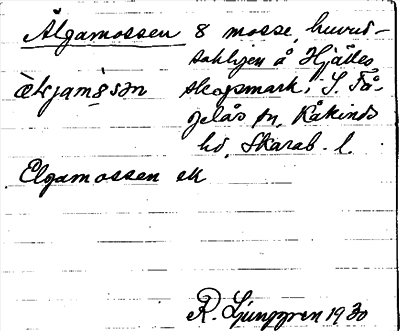 Älgamossen 8 mosse, huvud-
sakligen å Hjälles
ælɡjam skogsmark, S. Få-
gelås sn, Kåkinds
hd, Skarab. l.
Elgamossen ek
R. Ljunggren 1930